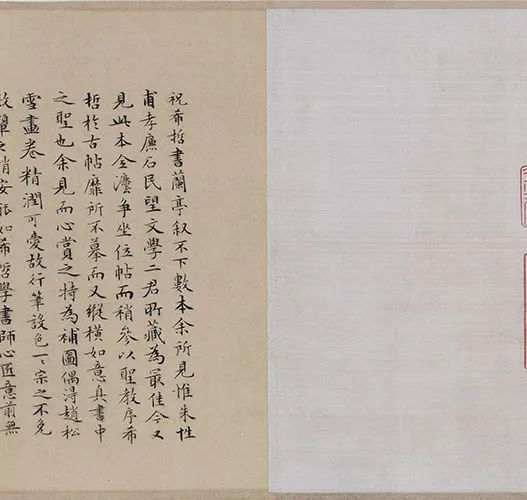 祝希哲書蘭亭叙不下數本余所見惟朱性
甫孝廉石民望文學二君所藏為最佳今又
見此本全灋爭坐位帖而稍參以聖教序希
哲於古帖靡所不摹而又縱橫如意真書中
之聖也余見而心賞之特為補圖偶淂趙松
雪畫卷精潤可愛故行筆設色一〻宗之不免
之安如希哲學書師心匠意前無